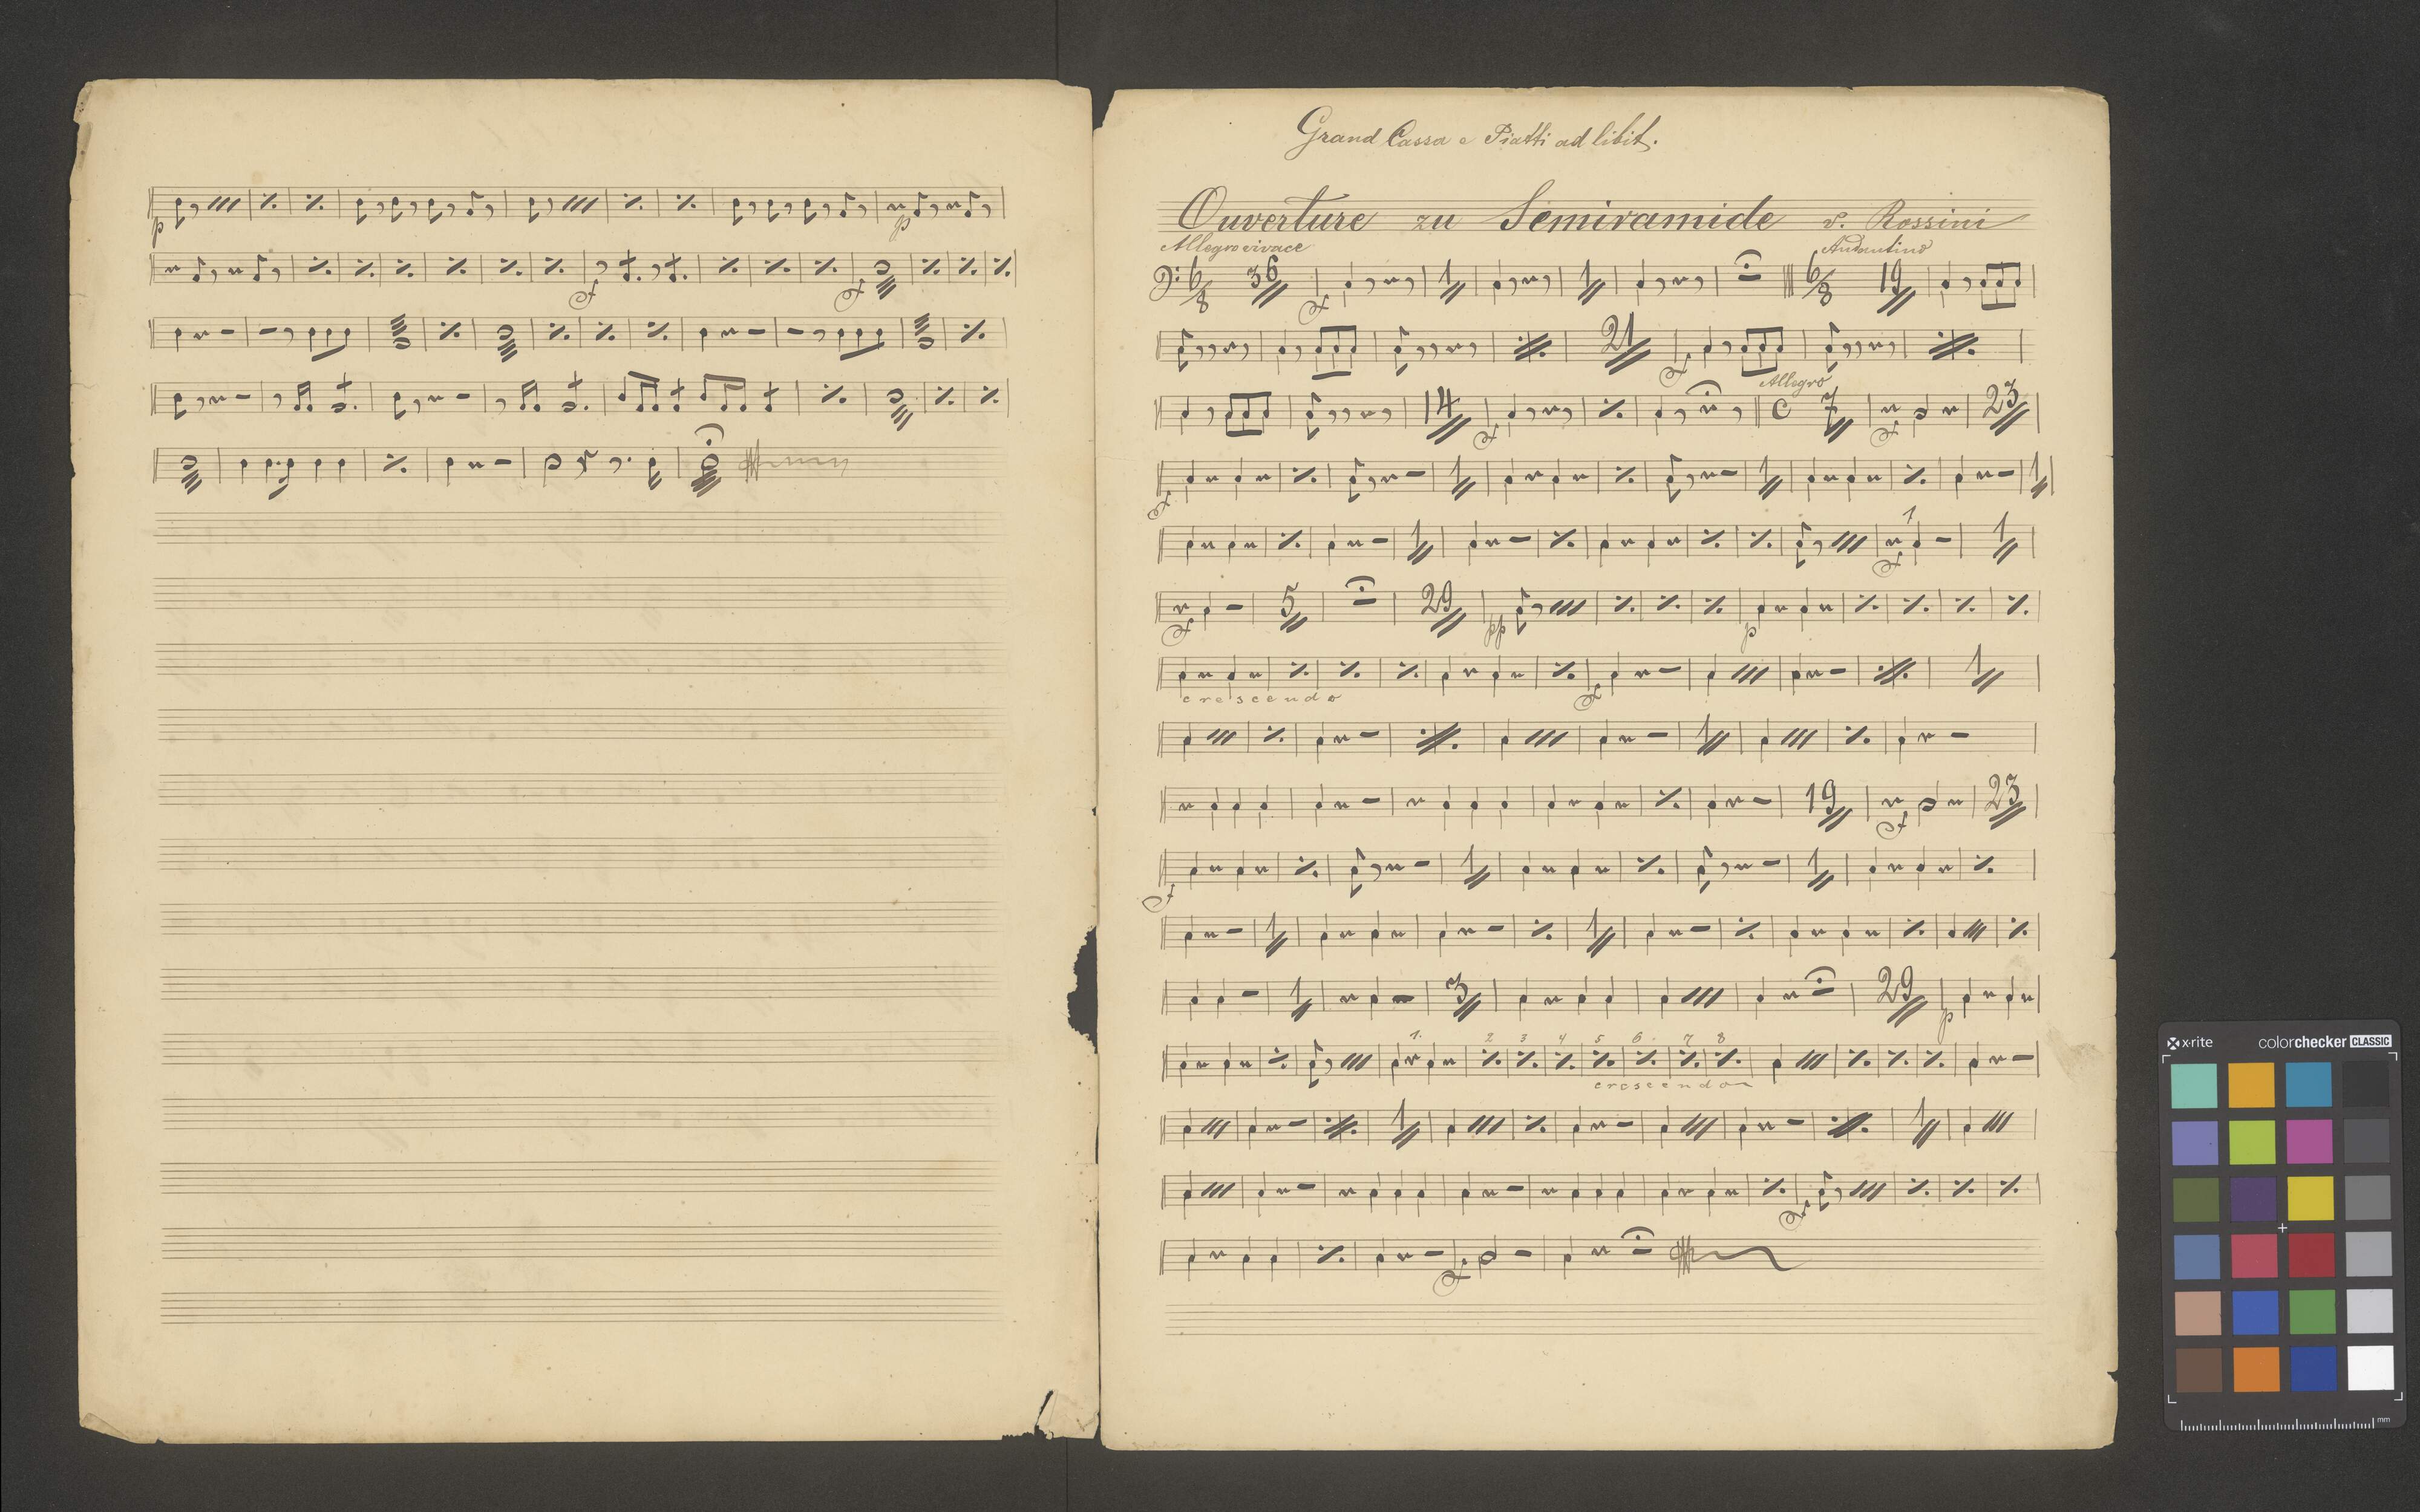 p p
f f
Grand Cassa e Piatti ad libit.
Ouverture zu Semiramide v. Rossini
Allegro vivace Andantino
6/8 36 f 1 1 6/8 19
21 f
Allegro
14 f C 7 f 23
f 1 1 1
1 1 f 1
f 5 29 pp p
crescendo f 1
1
19 f 23
f 1 1
1 1
1 3 29 p
1. 2 3 4 5 6 7 8
crescendo
1 1
f
f
x-rite colorchecker CLASSIC
mm